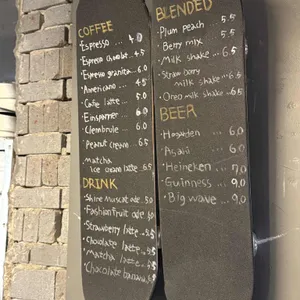 COFFEE
Espresso ... 4.0
Espresso Chocolat... 4.5
Espresso granita... 6.0
Americano ... 4.5
Cafe latte ... 5.0
Einspenner ... 6.0
Clembrule ... 6.0
Peanut cream ... 6.5
matcha
ice cream latte .. 6.5
DRINK
Shine muscat ade.
Fashion fruit ade.
Strawberry latte..
Chocolate latte..
Matcha latte ...
Chocolate banana
BLENDED
Plum peach ... 5.5
Berry mix ... 5.5
Milk shake ... 6.5
Strawberry
milk shake ... 6.5
Oreo milk shake .. 6.5
BEER
Hogaden ... 6.0
Asahi ... 6.0
Heineken ... 7.0
Guinness ... 9.0
Big wave ... 9.0